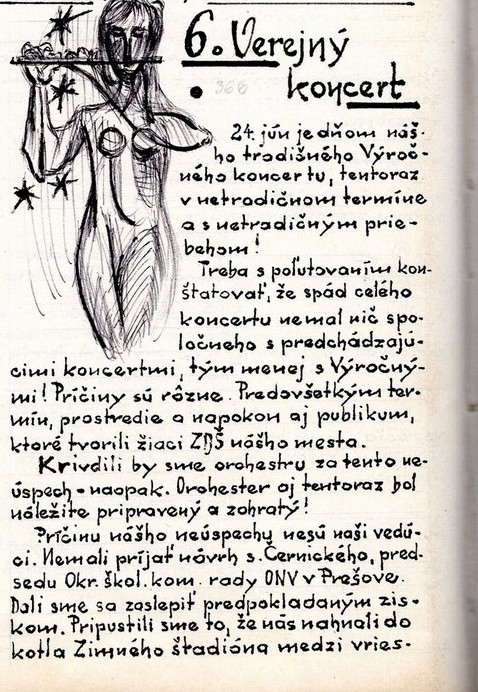 6. Verejný
koncert
366
24. jún je dňom náš-
ho tradičného Výroč-
ného koncertu, tentoraz
v netradičnom termíne
a s netradičným prie-
behom!
Treba s poľutovaním kon-
štatovať, že spád celého
koncertu nemal nič spo-
ločneho s predchádzajú-
cimi koncertmi, tým menej s Výročný-
mi! Príčiny sú rôzne. Predovšetkým ter-
mín, prostredie a napokon aj publikum,
ktoré tvorili žiaci ZDŠ nášho mesta.
Krivdili by sme orchestru za tento ne-
úspech - naopak. Orchester aj tentoraz bol
náležite pripravený a zohratý!
Príčinu nášho neúspechu nesú naši vedú-
ci. Nemali prijať návrh s. Černického, pred-
sedu Okr. škol. kom. rady ONV v Prešove.
Dali sme sa zaslepiť predpokladaným zis-
kom. Pripustili sme to, že nás nahnali do
kotla Zimného štadióna medzi vries-